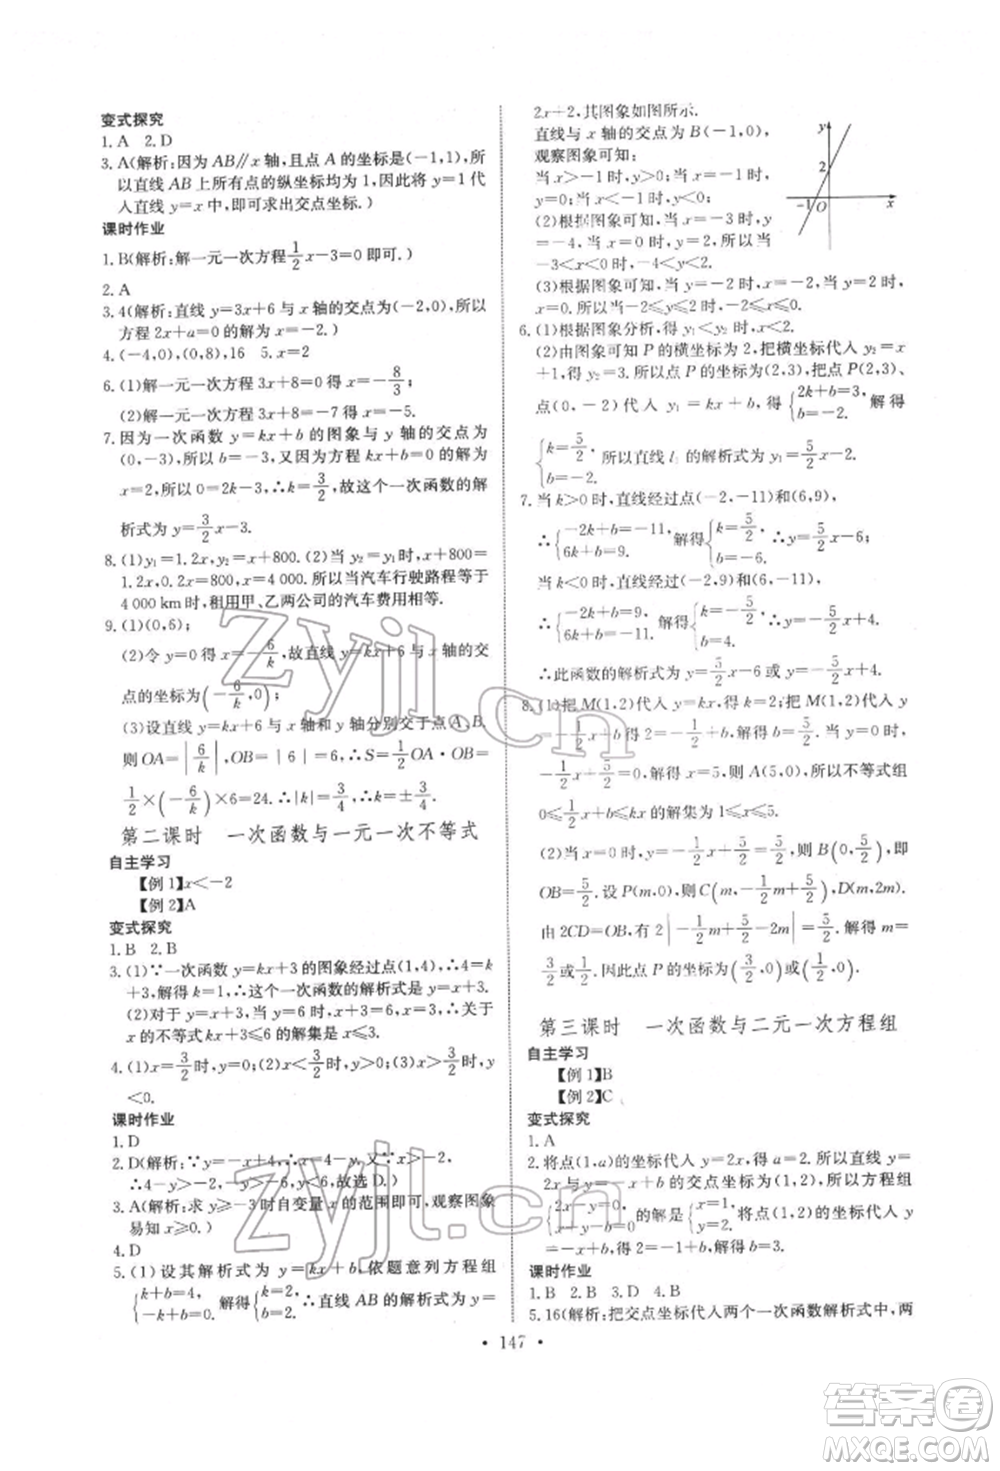 变式探究
1. A　2. D
3. A(解析:因为 AB∥x 轴,且点 A 的坐标是(-1,1),所
以直线 AB 上所有点的纵坐标均为 1,因此将 y=1 代
入直线 y=x 中,即可求出交点坐标.)
课时作业
1. B(解析:解一元一次方程 1/2 x-3=0 即可.)
2. A
3. 4(解析:直线 y=3x+6 与 x 轴的交点为(-2,0),所以
方程 2x+a=0 的解为 x=-2.)
4. (-4,0),(0,8),16　5. x=2
6. (1)解一元一次方程 3x+8=0 得 x=-8/3;
(2)解一元一次方程 3x+8=-7 得 x=-5.
7. 因为一次函数 y=kx+b 的图象与 y 轴的交点为
(0,-3),所以 b=-3,又因为方程 kx+b=0 的解为
x=2,所以 0=2k-3,∴k=3/2,故这个一次函数的解
析式为 y=3/2 x-3.
8. (1)y₁=1.2x,y₂=x+800. (2)当 y₁=y₂,x+800=
1.2x,解得 x=4 000.所以当汽车行驶路程等于
4 000 km时,租用甲、乙两公司的汽车费用相等.
9. (1)(0,6);
(2)令 y=0 得 x=-6/k,故直线 y=kx+6 与 x 轴的交
点的坐标为(-6/k,0);
(3)设直线 y=kx+6 与 x 轴和 y 轴分别交于点 A、B,
则 OA=|6/k|,OB=|6|=6.∴S=1/2 OA·OB=
1/2×(-6/k)×6=24.∴|k|=3/4,∴k=±3/4.
第二课时　一次函数与一元一次不等式
自主学习
【例 1】x<-2
【例 2】A
变式探究
1. B　2. B
3. (1)∵一次函数 y=kx+3 的图象经过点(1,4),∴4=k
+3,解得 k=1,∴这个一次函数的解析式为 y=x+3.
(2)对于 y=x+3,当 y=6 时,x=3,∴关于
x 的不等式 kx+3≤6 的解集是 x≤3.
4. (1)x=3/2时,y=0;(2)x<3/2时,y>0;(3)x>3/2时,y
<0.
课时作业
1. D
2. D(解析:∵y=-2时,x=4,又∵y>-2,
∴4-y>-2,y<6,故选 D.)
3. A(解析:求 y≥-3 时自变量 x 的范围即可,观察图象
易知 x≥0.)
4. D
5. (1) 设其解析式为 y=kx+b,依题意列方程组
{k+b=4, -k+b=0, 解得 ∴直线 AB 的解析式为 y=
2x+2,其图象如图所示.
直线与 x 轴的交点为 B(-1,0),
观察图象可知:
当 x>-1 时,y>0;当 x=-1 时,
y=0;当 x<-1 时,y<0.
(2)根据图象可知:当 x=-3 时,y
=-4,当 x=0 时,y=2.所以当
-3<x<0 时,-4<y<2.
(3)根据图象可知:当 y=-2 时,x=-2,当 y=2 时,
x=0.所以当-2≤y≤2时,-2≤x≤0.
6. (1)根据图象分析,得 y₁<y₂ 时,x<2.
(2)由图象可知 P 的横坐标为 2,把横坐标代入 y₂=
得 y₂=3.所以点 P 的坐标为(2,3),把点 P(2,3)、
点(0,-2)代入 y₁=kx+b,得{2k+b=3, b=-2. 解得
{k=5/2, b=-2. 所以直线 l₁ 的解析式为 y₁=5/2 x-2.
7. 当 k>0 时,直线经过点(-2,-11)和(6,9),
∴{-2k+b=-11, 6k+b=9. 解得{k=5/2, b=-6. ∴y=5/2 x-6;
当 k<0 时,直线经过点(-2,9)和(6,-11),
∴{-2k+b=9, 6k+b=-11. 解得{k=-5/2, b=4. ∴y=-5/2 x+4.
∴此函数的解析式为 y=5/2 x-6 或 y=-5/2 x+4.
8. (1)把 M(1,2)代入 y=kx,得 k=2;把 M(1,2)代入 y=
-1/2 x+b 得 2=-1/2+b,解得 b=5/2.当 y=0 时,
-1/2 x+5/2=0,解得 x=5,则 A(5,0),所以不等式组
0≤-1/2 x+b≤kx 的解集为 1≤x≤5.
(2)当 x=0 时,y=-1/2 x+5/2=5/2,则 B(0,5/2),即
OB=5/2.设 P(m,0),则 C(m,-1/2 m+5/2),D(m,2m).
由 2CD=OB,有 2|-1/2 m+5/2-2m|=5/2.解得 m=
3/2或1/2.因此点 P 的坐标为(3/2,0)或(1/2,0).
第三课时　一次函数与二元一次方程组
自主学习
【例 1】B
【例 2】C
变式探究
1. A
2. 将点(1,a)的坐标代入 y=2x,得 a=2.所以直线 y=
2x 与 y=-x+b 的交点坐标为(1,2),所以方程组
{2x-y=0, x+y-b=0 的解是{x=1, y=2. 将点(1,2)的坐标代入 y
=-x+b,得 2=-1+b,解得 b=3.
课时作业
1. B　2. D　3. D　4. B
5. 16(解析:把交点坐标代入两个一次函数解析式中,两
y
2
-1
O
x
• 147 •
zyjl.cn
zyjl.cn
答案圈
MXQE.COM